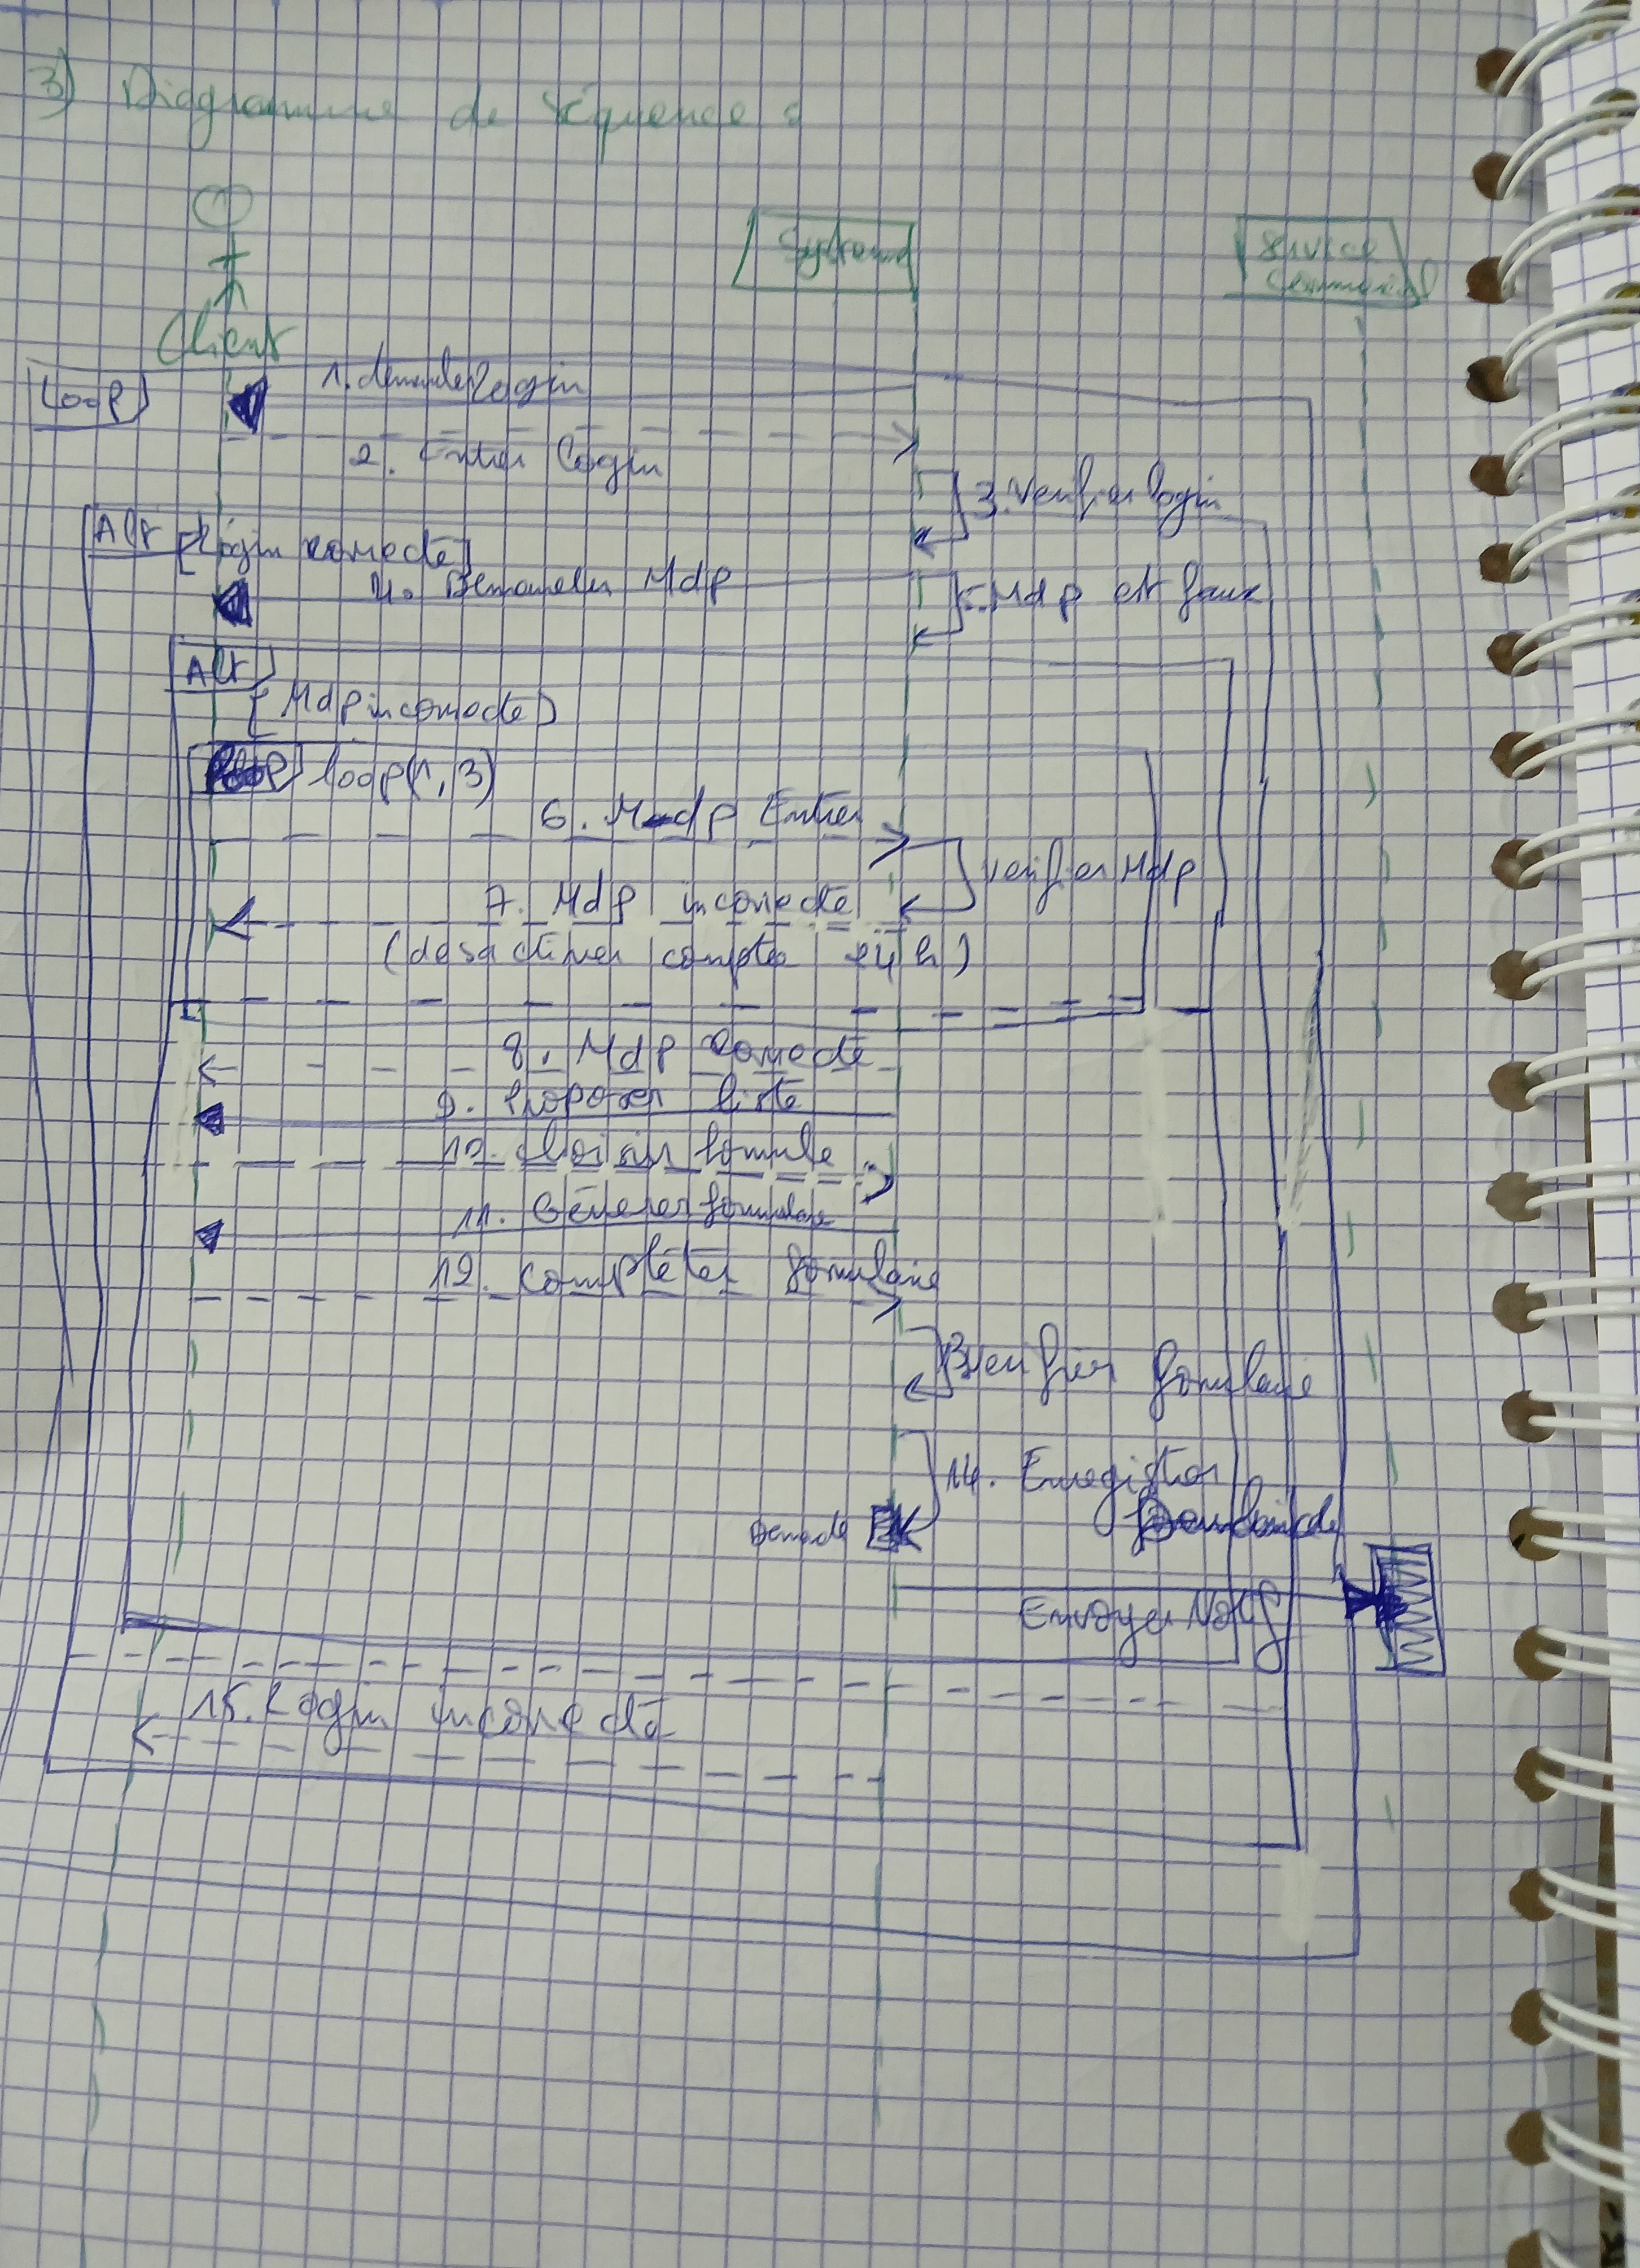 3) Diagramme de séquence :
Système
Service
Commercial
Client
Loop
1. demander login
2. Entrer login
3. Verifier login
Alt [login correcte]
4. Demander Mdp
5. Mdp est faux
Alt
[Mdp incorrecte]
loop(1,3)
6. Mdp Entrer
verifier Mdp
7. Mdp incorrecte
(desactiver compte 24h)
8. Mdp correcte
9. Proposer liste
10. choisir formule
11. Générer formulaire
12. compléter formulaire
13 verifier formulaire
14. Enregistrer
Demande
Envoyer Notif
15. Login incorrecte